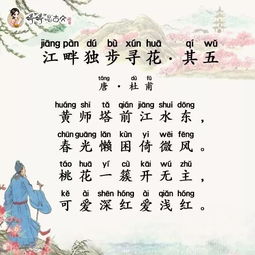 jiāng pàn dú bù xún huā qí wǔ
江畔独步寻花·其五
táng dù fǔ
唐·杜甫
huáng shī tǎ qián jiāng shuǐ dōng
黄师塔前江水东，
chūn guāng lǎn kùn yǐ wēi fēng
春光懒困倚微风。
táo huā yí cù kāi wú zhǔ
桃花一簇开无主，
kě ài shēn hóng ài qiǎn hóng
可爱深红爱浅红。